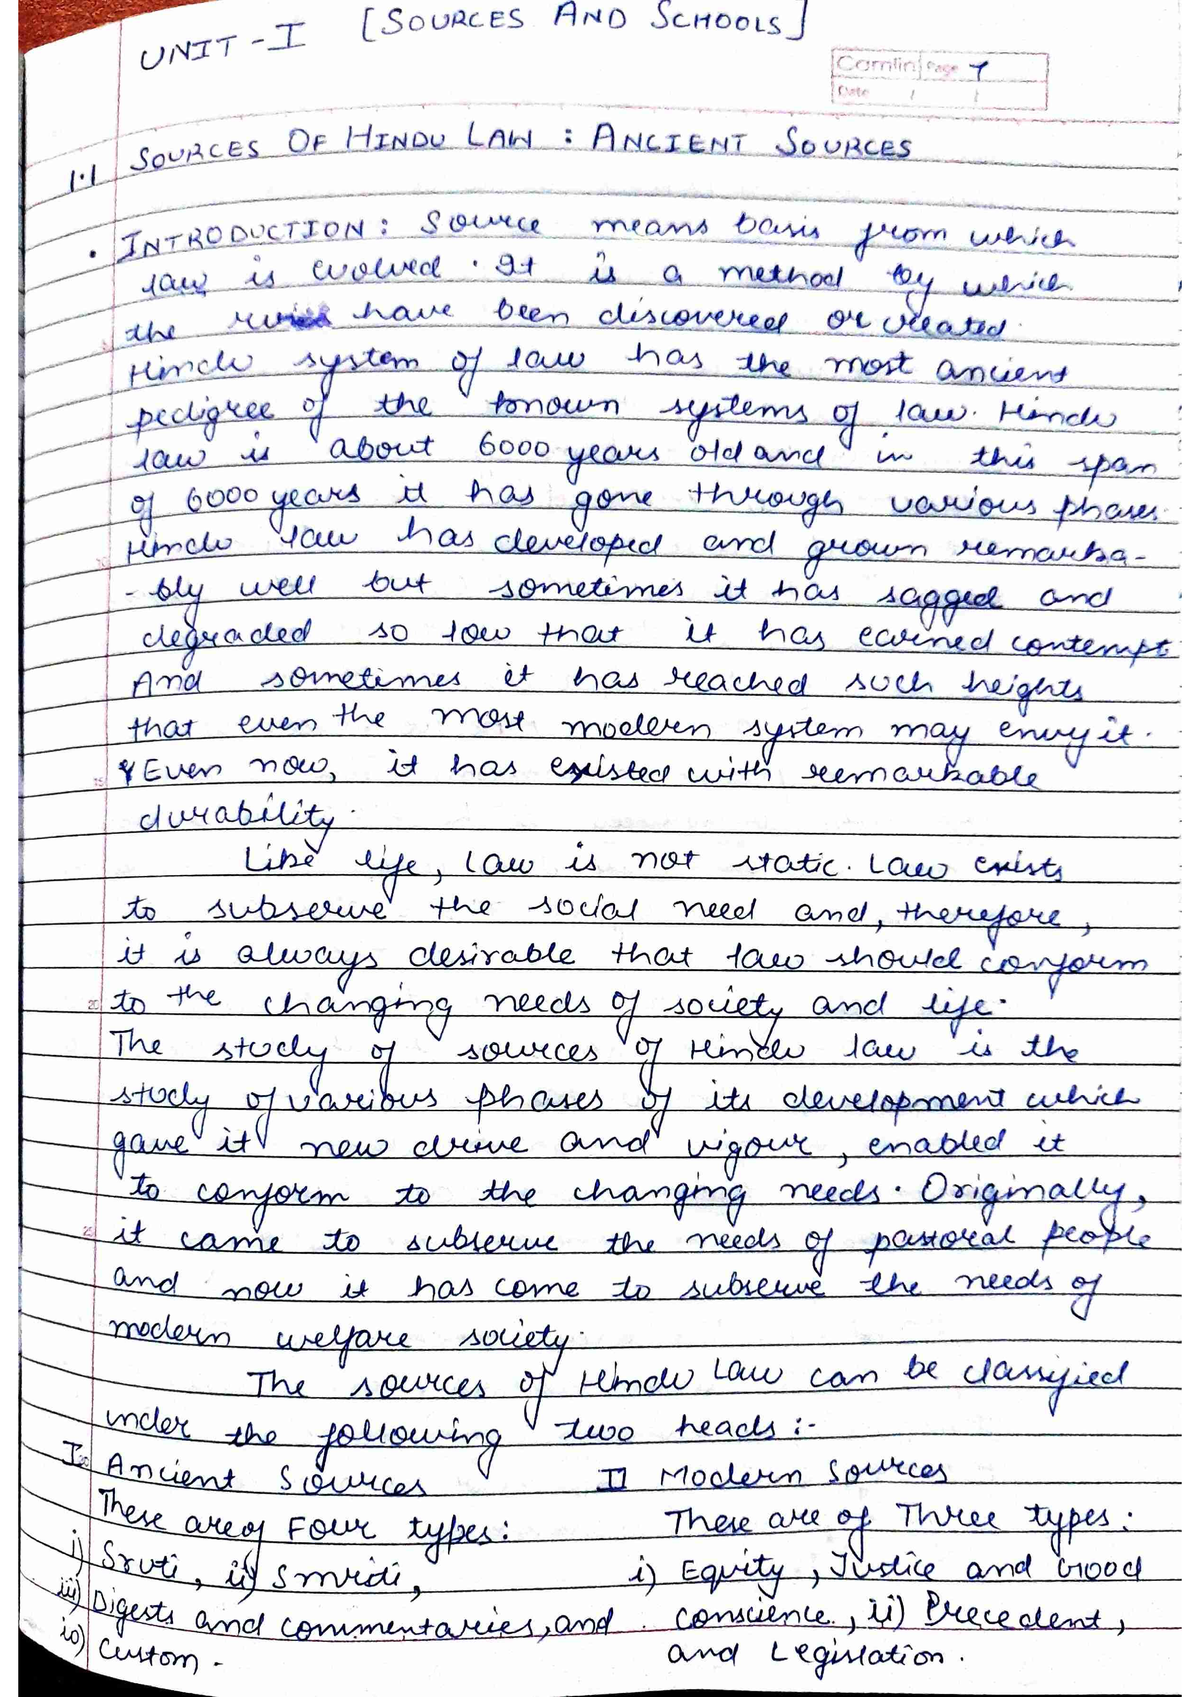 UNIT - I [SOURCES AND SCHOOLS]
Camlin Page 1
Date / /
1.1 SOURCES OF HINDU LAW : ANCIENT SOURCES
• INTRODUCTION : Source means basis from which
law is evolved. It is a method by which
the have been discovered or created.
Hindu system of law has the most ancient
pedigree of the known systems of law. Hindu
law is about 6000 years old and in this span
of 6000 years it has gone through various phases.
Hindu law has developed and grown remarka-
- bly well but sometimes it has sagged and
degraded so low that it has earned contempt.
And sometimes it has reached such heights
that even the most modern system may envy it.
Even now, it has existed with remarkable
durability.
Like life, law is not static. Law exists
to subserve the social need and, therefore,
it is always desirable that law should conform
20 to the changing needs of society and life.
The study of sources of Hindu law is the
study of various phases of its development which
gave it new drive and vigour, enabled it
to conform to the changing needs. Originally,
25 it came to subserve the needs of pastoral people
and now it has come to subserve the needs of
modern welfare society.
The sources of Hindu Law can be classified
under the following two heads :-
I. Ancient Sources II Modern Sources
These are of Four types : These are of Three types :
i) Sruti, ii) Smriti, i) Equity, Justice and Good
iii) Digests and commentaries, and conscience, ii) Precedent,
iv) Custom. and Legislation.